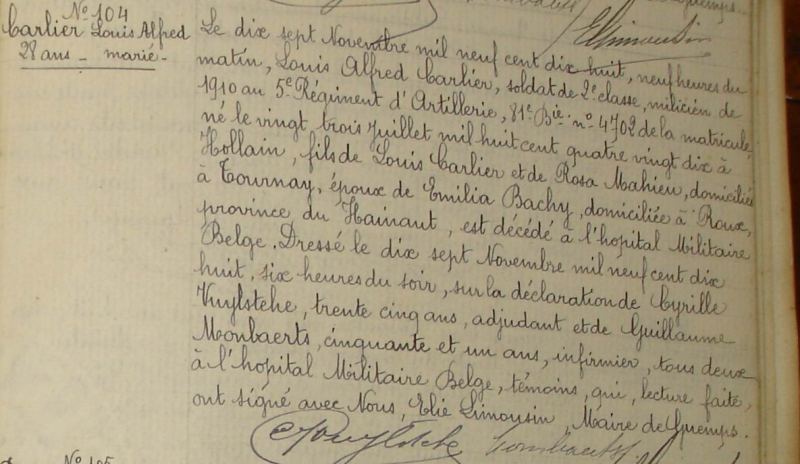 Nº 104
Carlier Louis Alfred
28 ans - marié -
ELimousin
Le dix sept Novembre mil neuf cent dix huit, neuf heures du
matin, Louis Alfred Carlier, soldat de 2e classe, milicien de
1910 au 5e Régiment d'Artillerie, 81e Bie nº 4702 de la matricule,
né le vingt trois juillet mil huit cent quatre vingt dix à
Hollain, fils de Louis Carlier et de Rosa Mahieu, domiciliés
à Tournay, époux de Emilia Bachy, domiciliée à Roux,
province du Hainaut, est décédé à l'hopital Militaire
Belge. Dressé le dix sept Novembre mil neuf cent dix
huit, six heures du soir, sur la déclaration de Cyrille
Vuylstehe, trente cinq ans, adjudant et de Guillaume
Monbaerts, cinquante et un ans, infirmier, tous deux
à l'hopital Militaire Belge, témoins, qui, lecture faite,
ont signé avec Nous, Elie Limousin, Maire de Guemps.
Nº 105